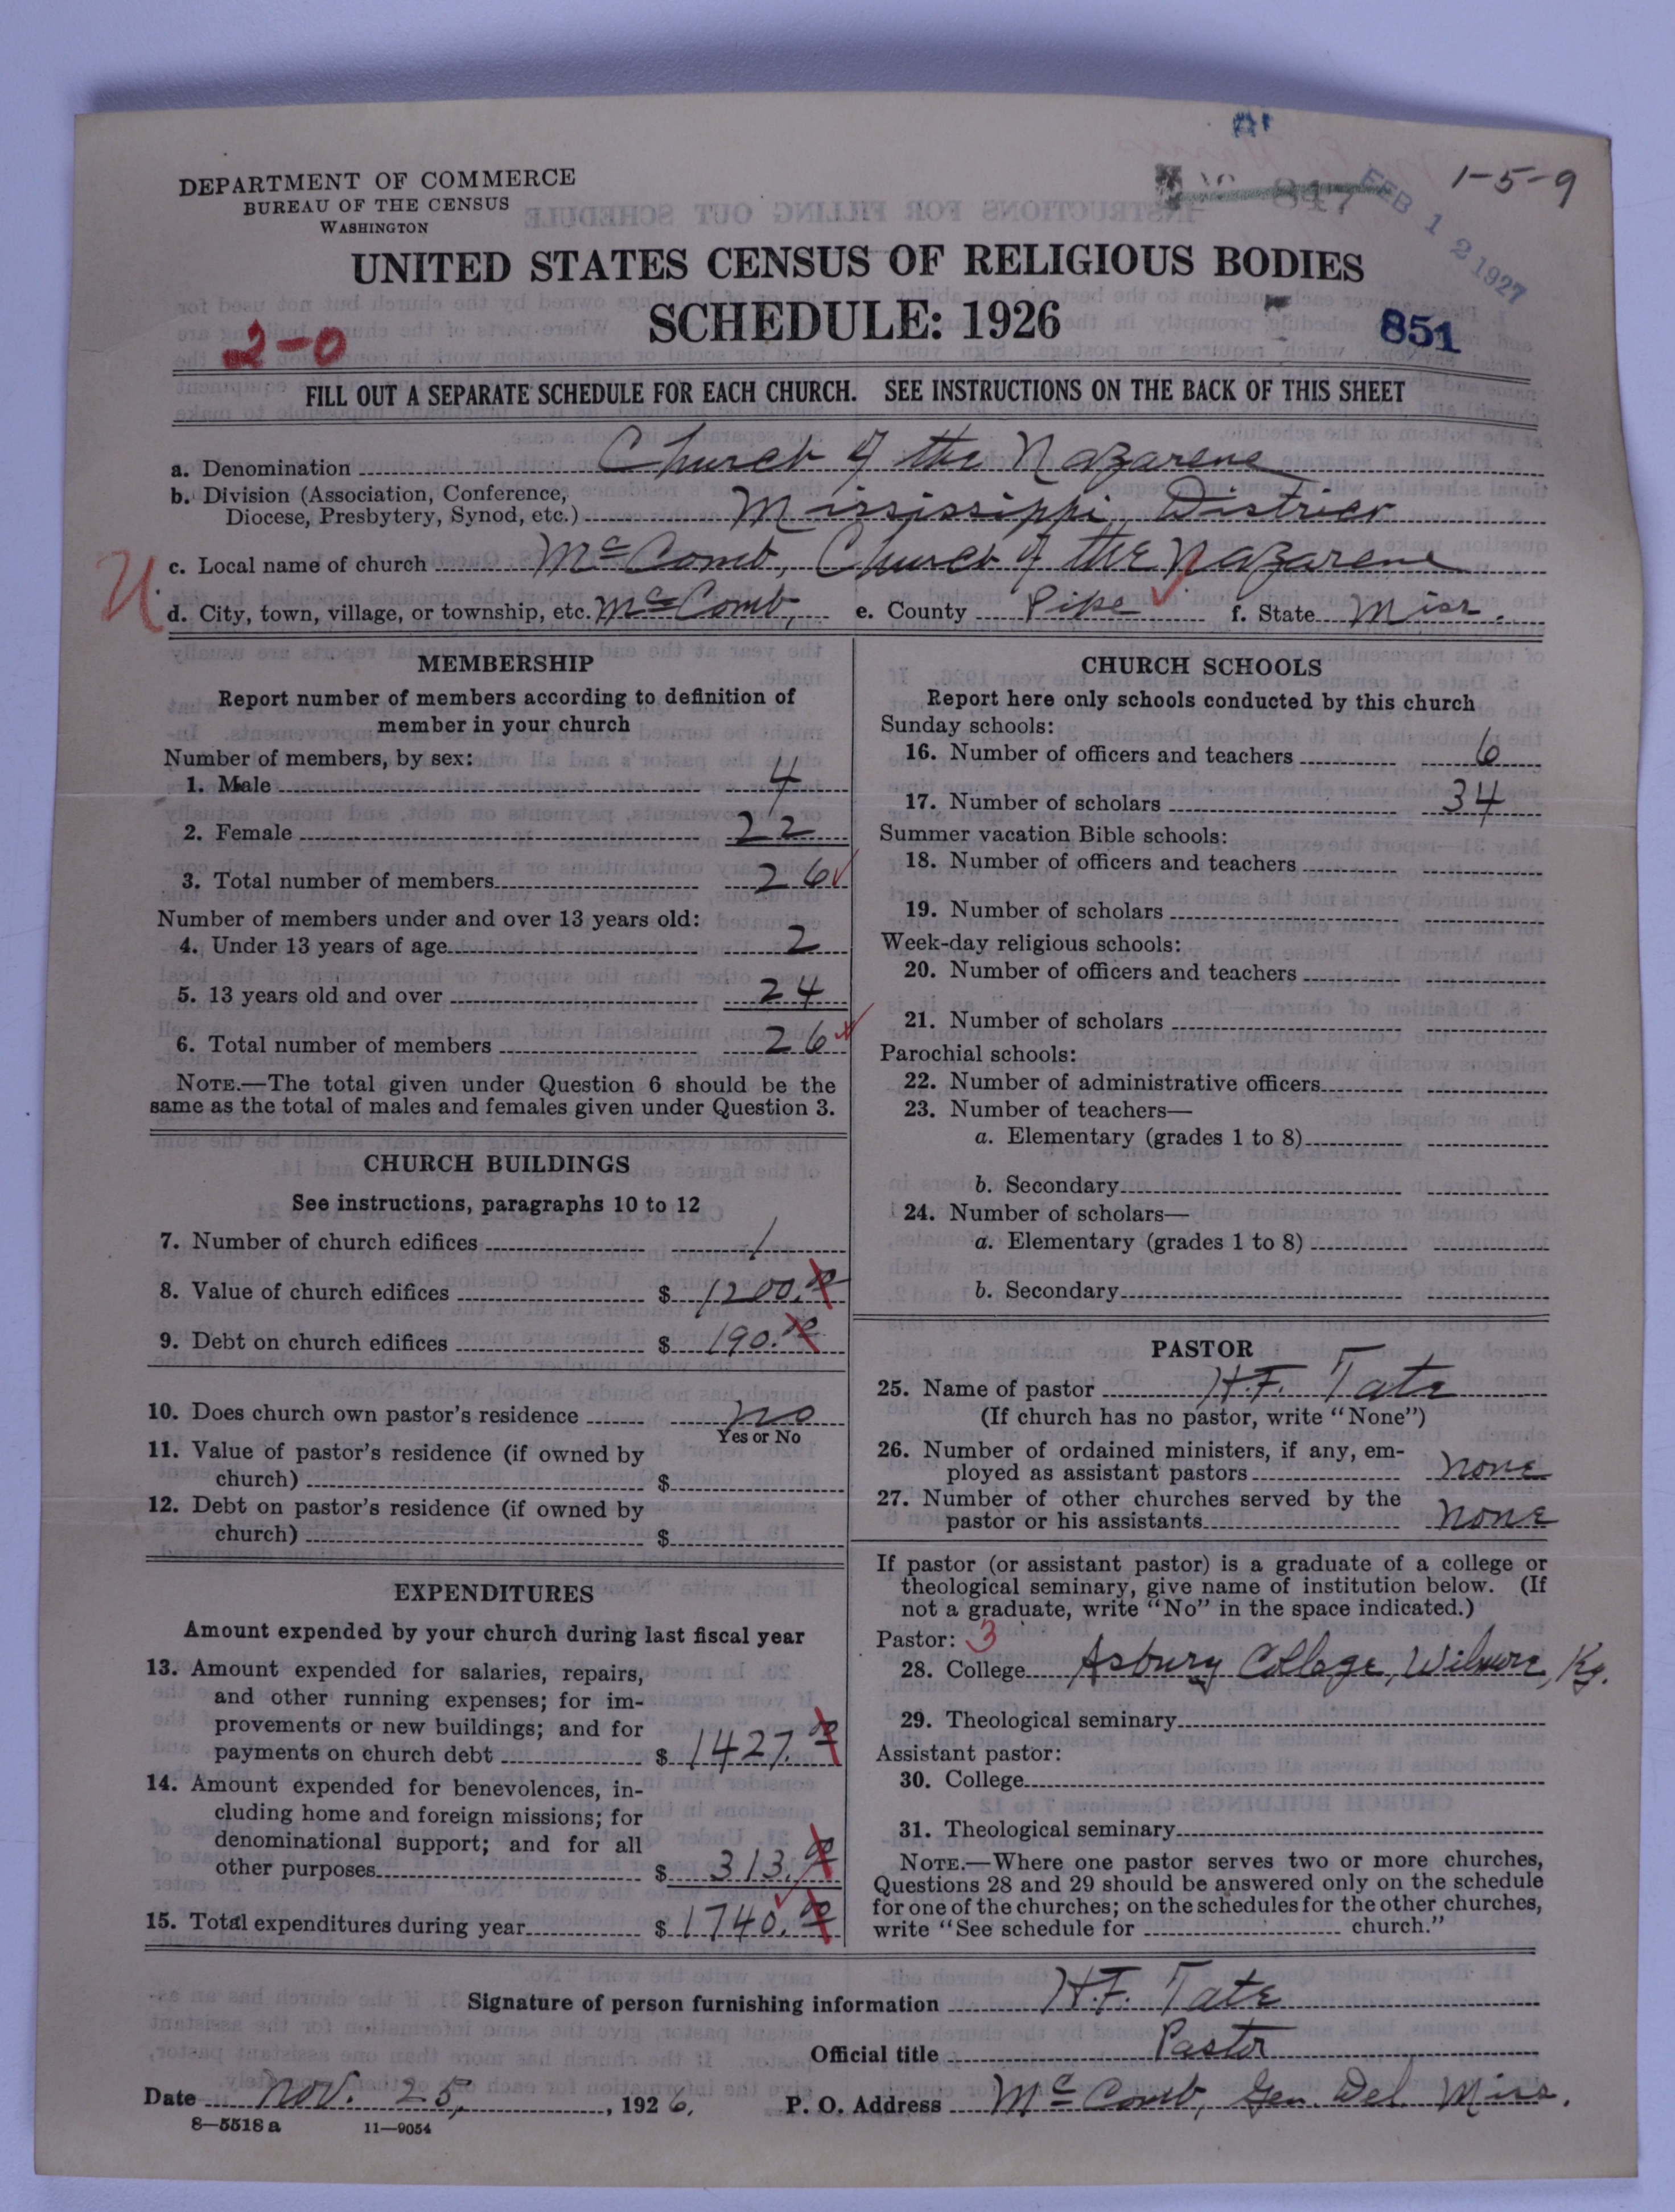 1-5-9
FEB 12 1927
DEPARTMENT OF COMMERCE
BUREAU OF THE CENSUS
WASHINGTON
UNITED STATES CENSUS OF RELIGIOUS BODIES
SCHEDULE: 1926
2-0
851
FILL OUT A SEPARATE SCHEDULE FOR EACH CHURCH. SEE INSTRUCTIONS ON THE BACK OF THIS SHEET
a. Denomination Church of the Nazarene
b. Division (Association, Conference,
Diocese, Presbytery, Synod, etc.) Mississippi District
c. Local name of church McComb, Church of the Nazarene
d. City, town, village, or township, etc. McComb, e. County Pike f. State Miss.
MEMBERSHIP
Report number of members according to definition of
member in your church
Number of members, by sex:
1. Male 4
2. Female 22
3. Total number of members 26
Number of members under and over 13 years old:
4. Under 13 years of age 2
5. 13 years old and over 24
6. Total number of members 26
NOTE.—The total given under Question 6 should be the
same as the total of males and females given under Question 3.
CHURCH BUILDINGS
See instructions, paragraphs 10 to 12
7. Number of church edifices 1
8. Value of church edifices $ 1200.00
9. Debt on church edifices $ 190.00
10. Does church own pastor's residence no
Yes or No
11. Value of pastor's residence (if owned by
church) $
12. Debt on pastor's residence (if owned by
church) $
EXPENDITURES
Amount expended by your church during last fiscal year
13. Amount expended for salaries, repairs,
and other running expenses; for im-
provements or new buildings; and for
payments on church debt $ 1427.00
14. Amount expended for benevolences, in-
cluding home and foreign missions; for
denominational support; and for all
other purposes $ 313.00
15. Total expenditures during year $ 1740.00
CHURCH SCHOOLS
Report here only schools conducted by this church
Sunday schools:
16. Number of officers and teachers 6
17. Number of scholars 34
Summer vacation Bible schools:
18. Number of officers and teachers
19. Number of scholars
Week-day religious schools:
20. Number of officers and teachers
21. Number of scholars
Parochial schools:
22. Number of administrative officers
23. Number of teachers—
a. Elementary (grades 1 to 8)
b. Secondary
24. Number of scholars—
a. Elementary (grades 1 to 8)
b. Secondary
PASTOR
25. Name of pastor H.F. Tate
(If church has no pastor, write "None")
26. Number of ordained ministers, if any, em-
ployed as assistant pastors none
27. Number of other churches served by the
pastor or his assistants none
If pastor (or assistant pastor) is a graduate of a college or
theological seminary, give name of institution below. (If
not a graduate, write "No" in the space indicated.)
Pastor: 3
28. College Asbury College, Wilmore, Ky.
29. Theological seminary
Assistant pastor:
30. College
31. Theological seminary
NOTE.—Where one pastor serves two or more churches,
Questions 28 and 29 should be answered only on the schedule
for one of the churches; on the schedules for the other churches,
write "See schedule for church."
Signature of person furnishing information H.F. Tate
Official title Pastor
Date Nov. 25, 1926. P. O. Address McComb, Gen. Del. Miss.
8—5518 a 11—9054